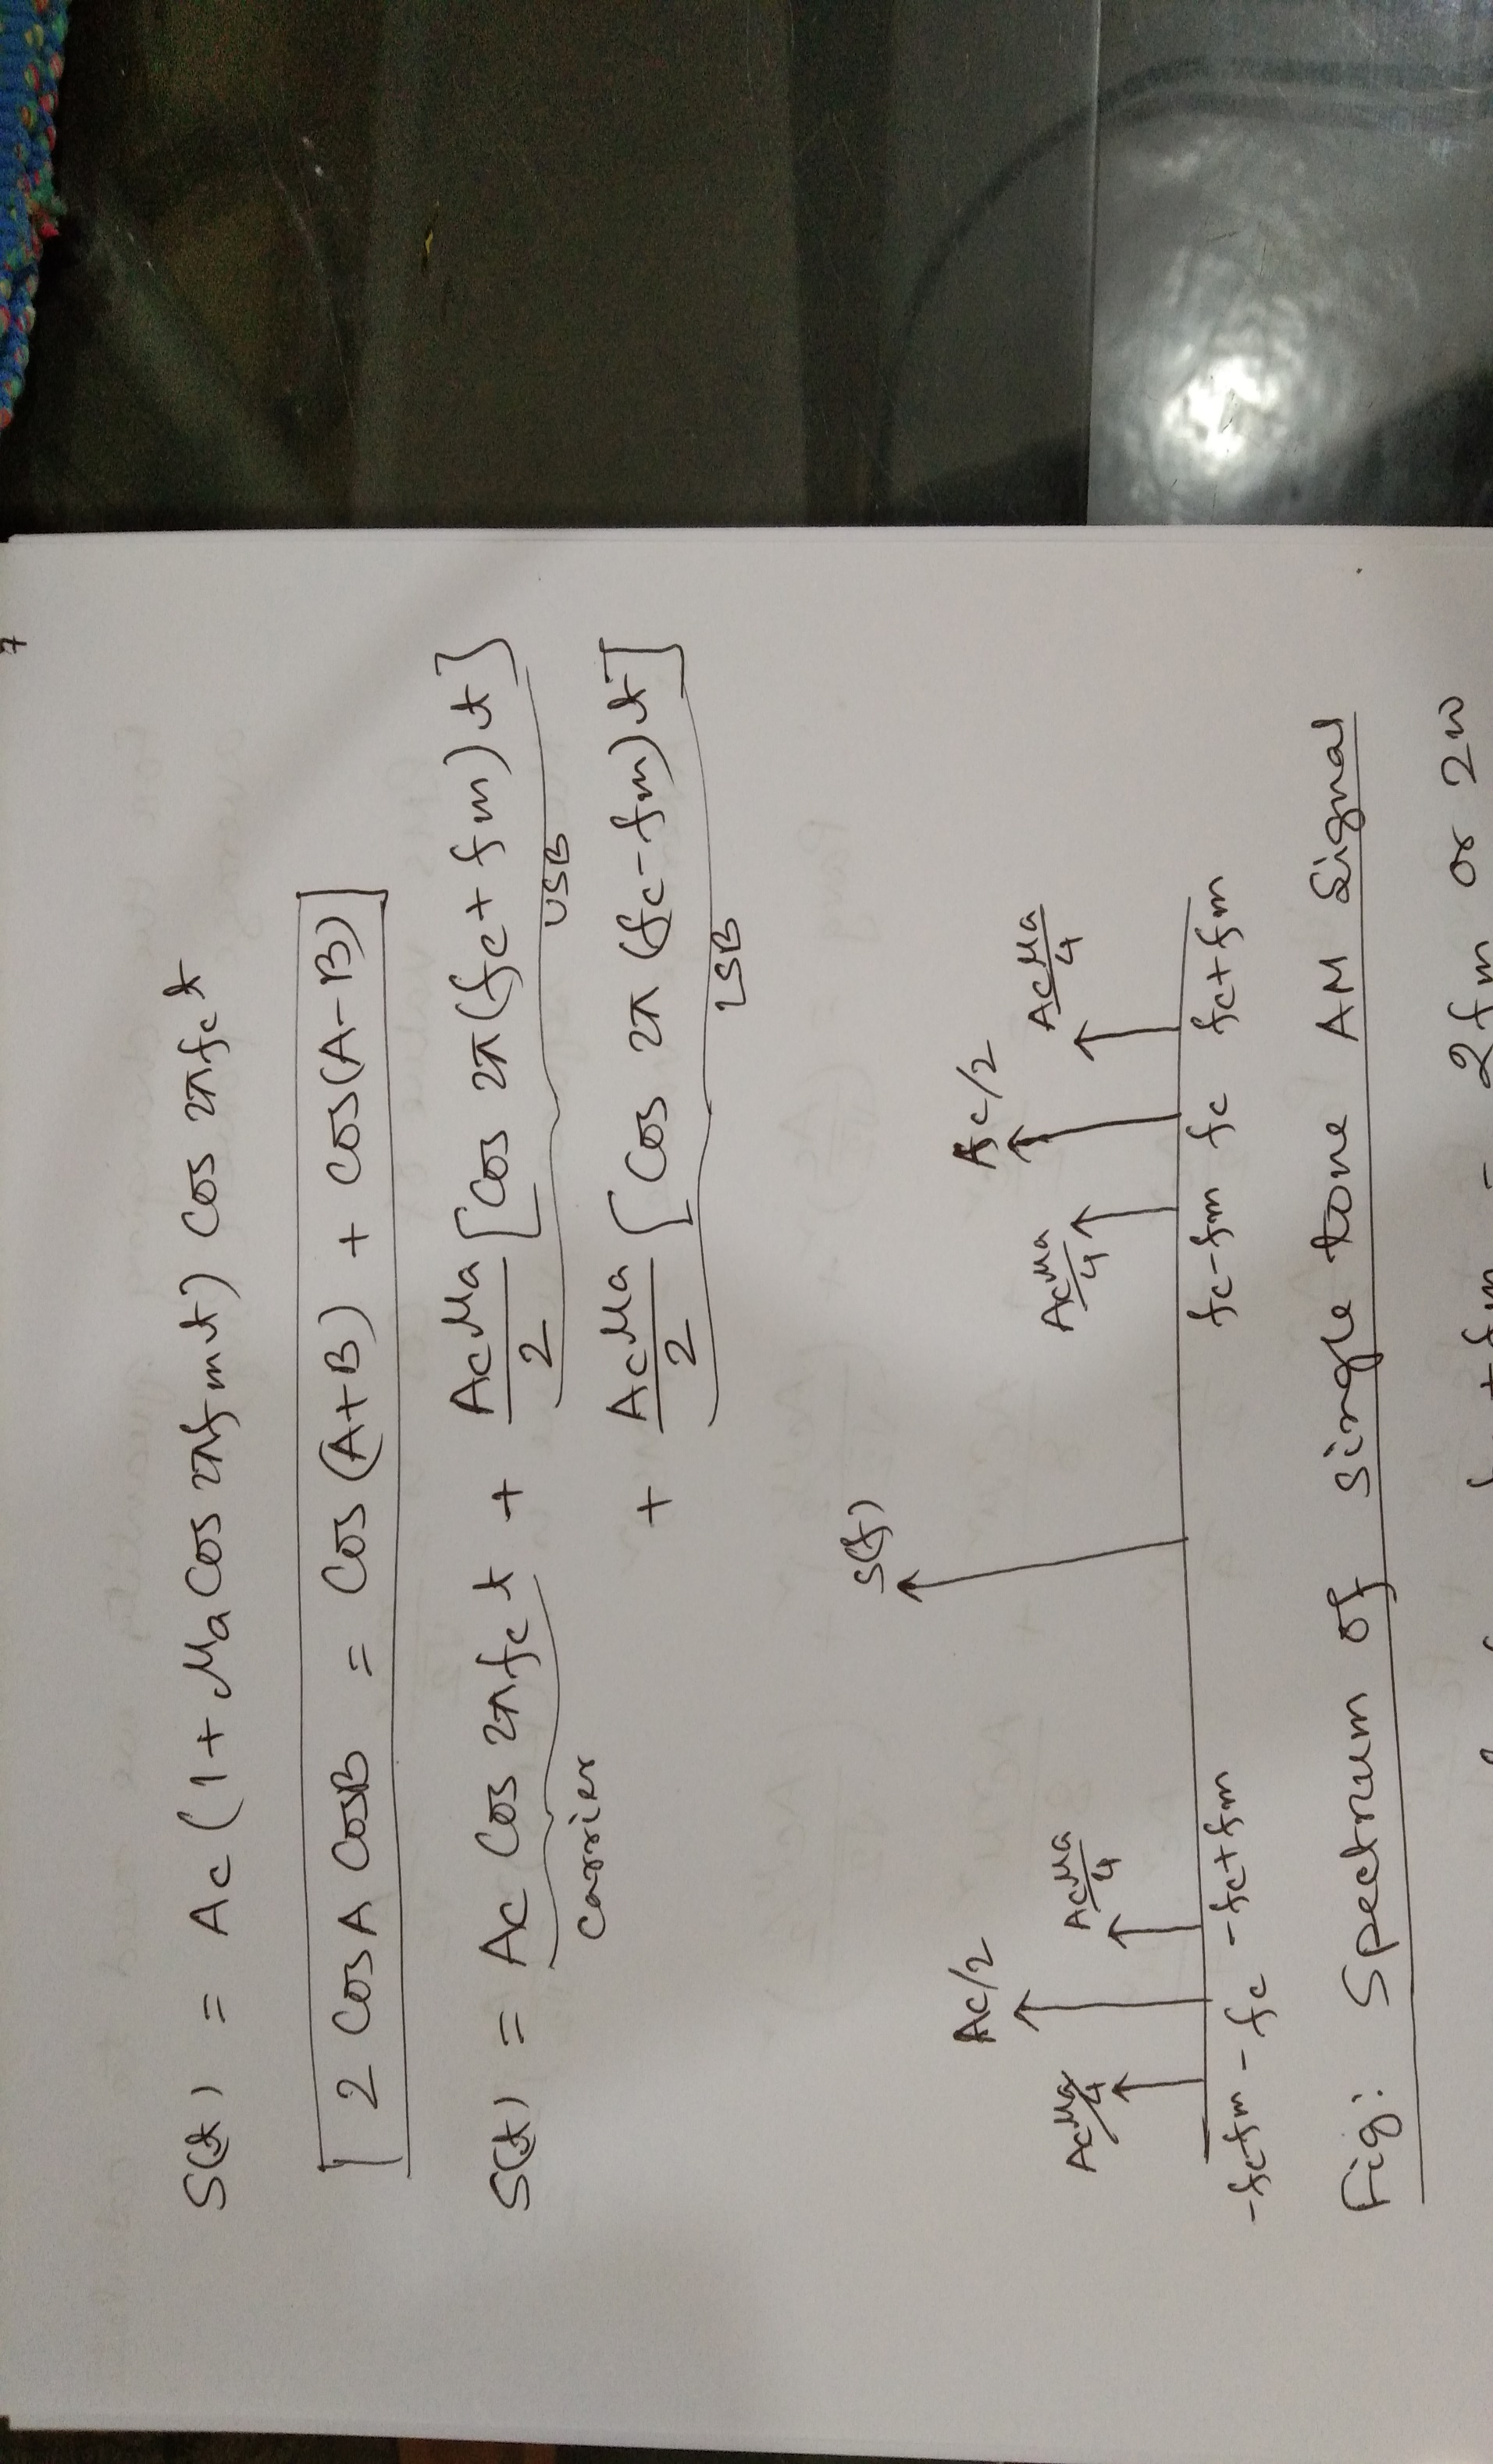 7
S(t) = Ac (1 + μa Cos 2πfmt) Cos 2πfct
[2 Cos A CosB = Cos (A+B) + Cos(A-B)]
S(t) = Ac Cos 2πfct + Acμa/2 [Cos 2π(fc+fm)t]
carrier USB
+ Acμa/2 [Cos 2π(fc-fm)t]
LSB
S(f)
Ac/2 Ac/2
Acμa/4 Acμa/4 Acμa/4 Acμa/4
-fc-fm -fc -fc+fm fc-fm fc fc+fm
Fig: Spectrum of single tone AM Signal
2fm or 2w